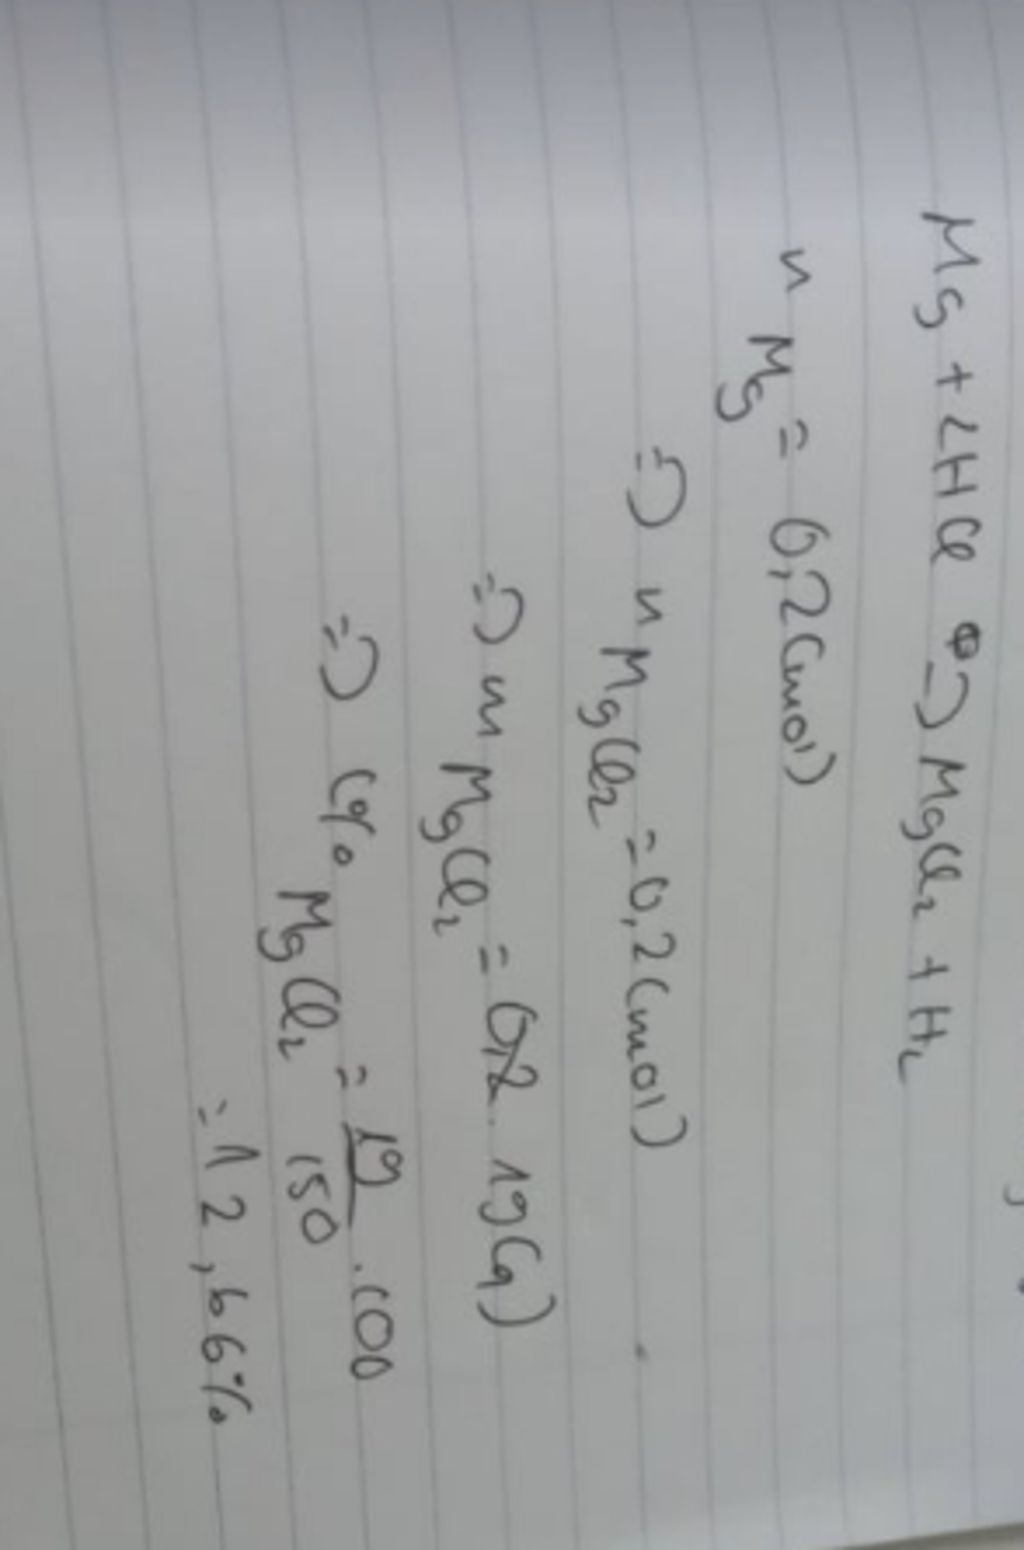 Mg + 2HCl => MgCl2 + H2
n Mg = 0,2 (mol)
=> n MgCl2 = 0,2 (mol)
=> m MgCl2 = 0,2 . 19 (g)
=> C% MgCl2 = 19/150 . 100
= 12,66%